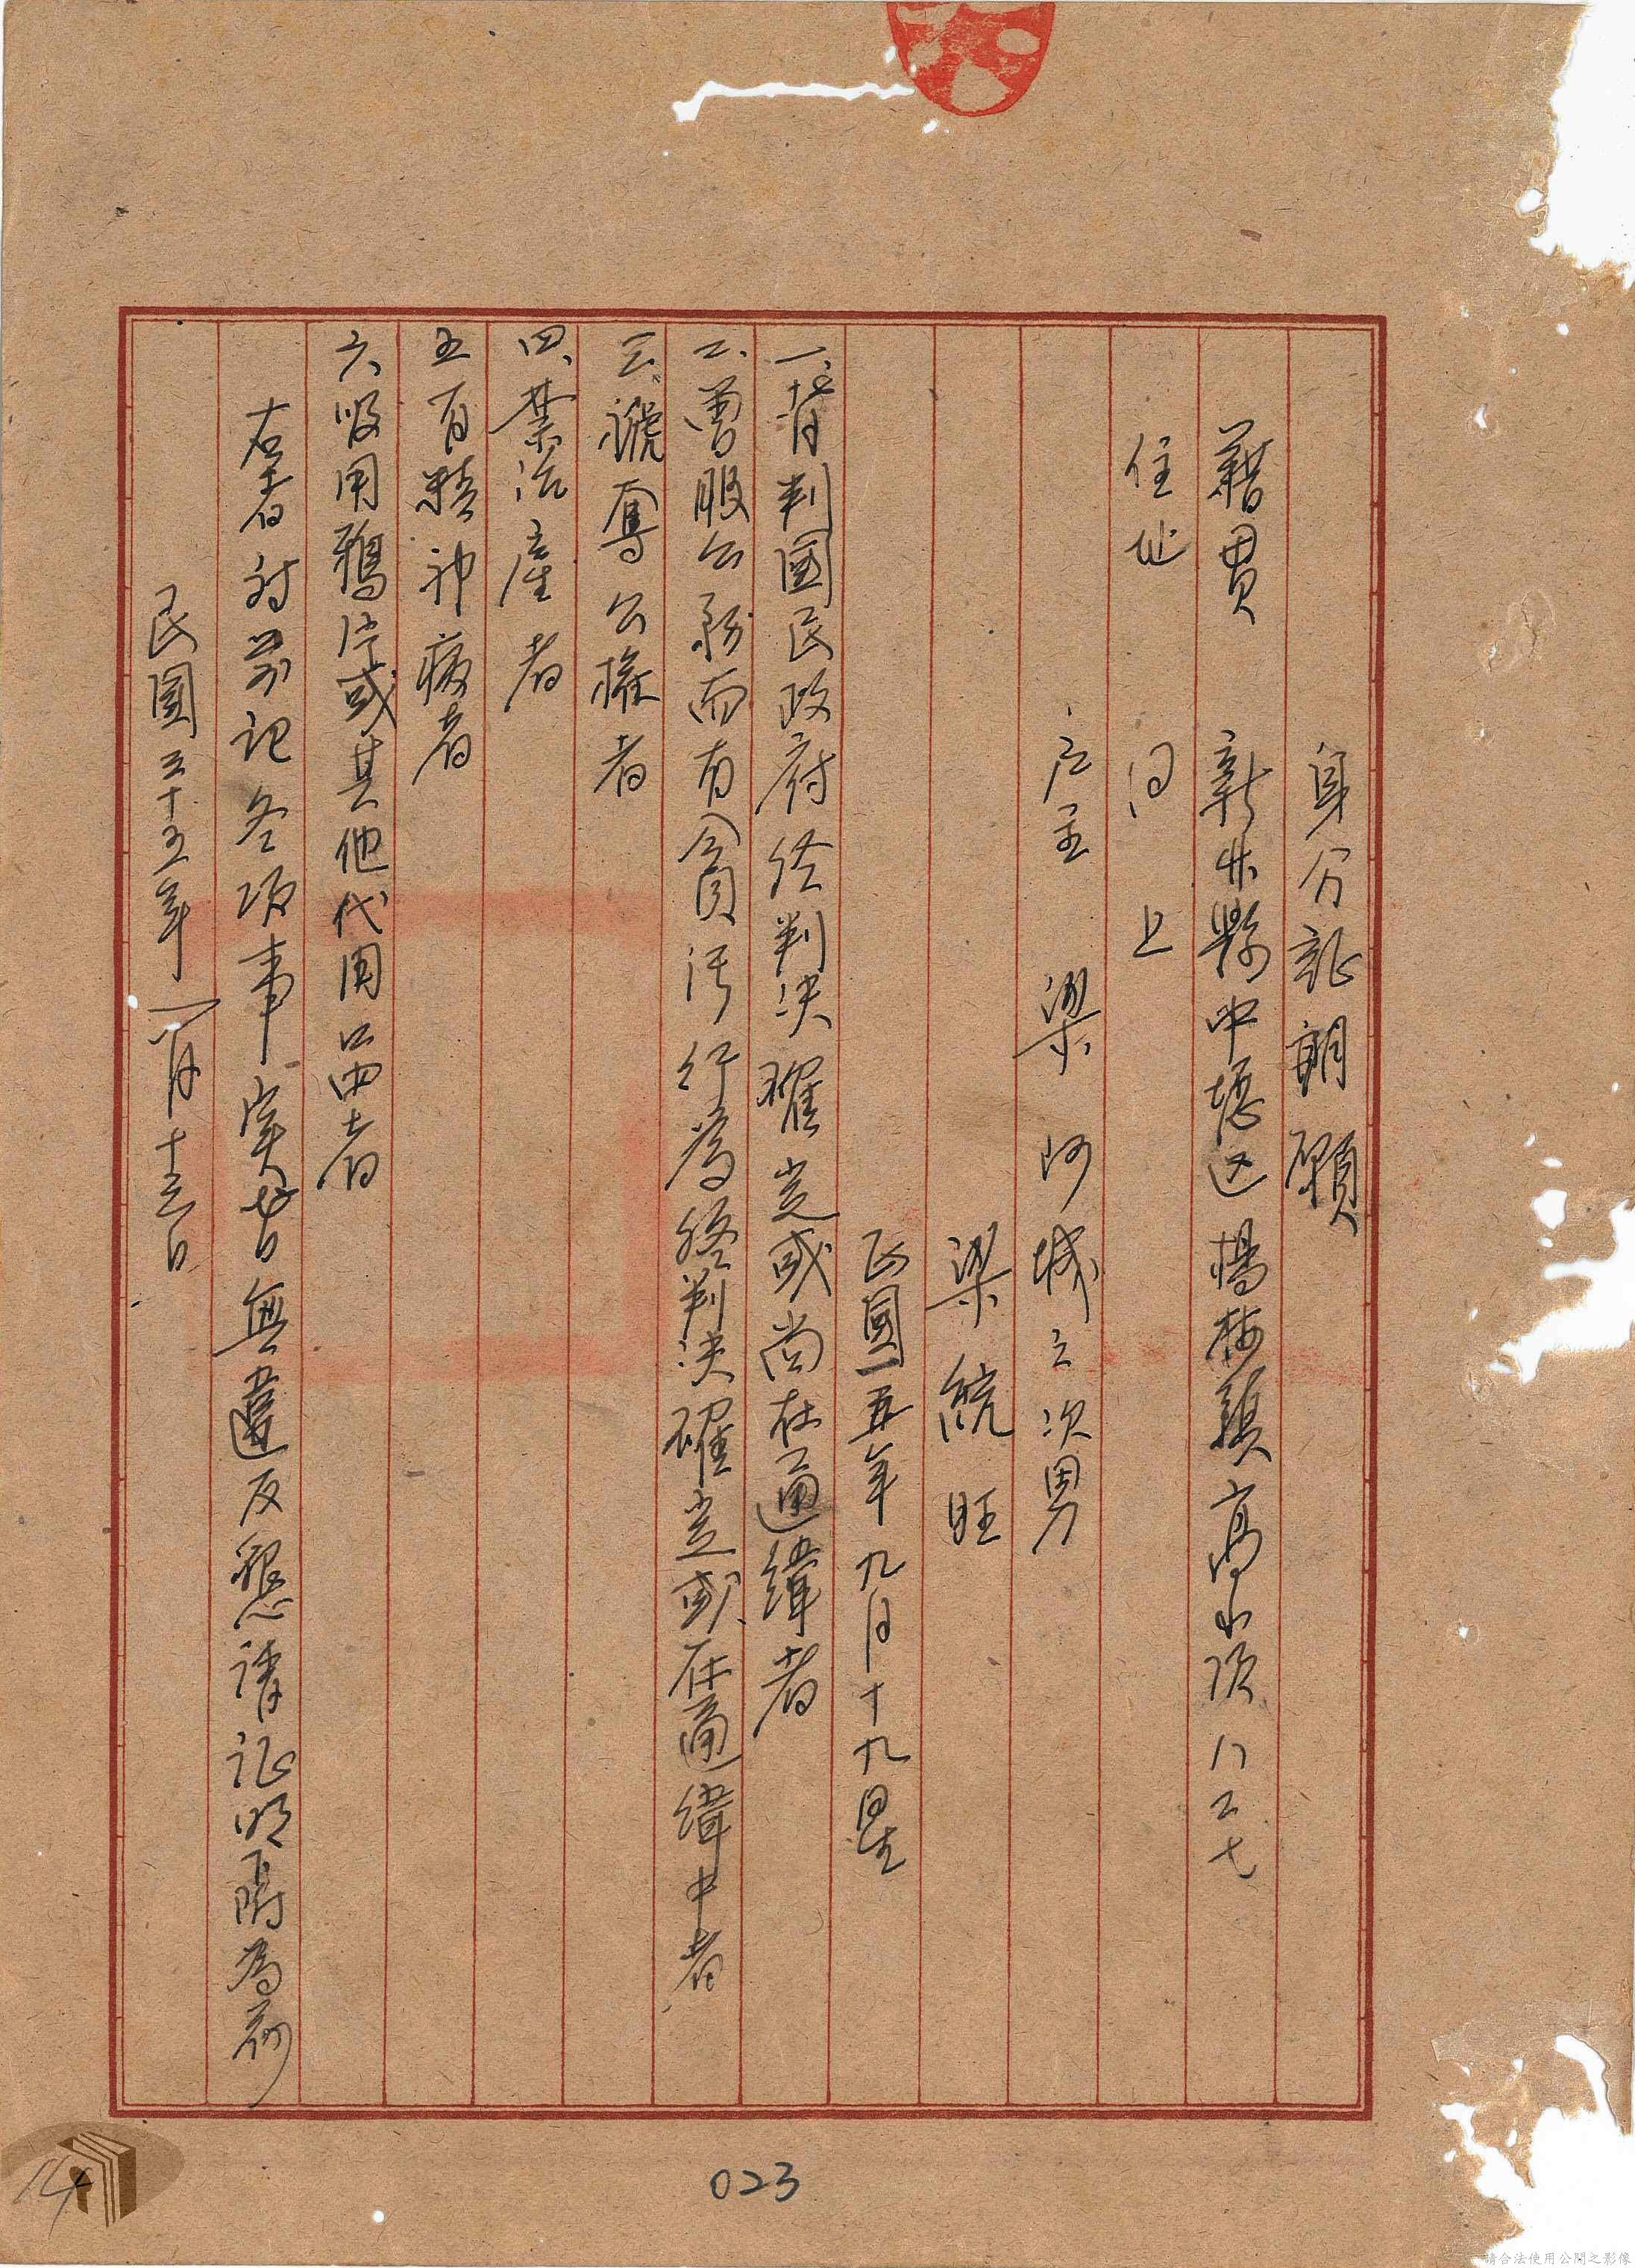 身分証明願
藉貫 新竹縣中壢区楊梅鎮高山頂八二七
住址 同上
户主 梁阿城之次男
梁統旺
民國一五年九月十九日生
一、背判國民政府經判决確定或尚在通緝者
二、曾服公務而有貪污行為終判决確定或在通緝中者
三、褫奪公權者
四、禁治產者
五有精神病者
六、吸用鴉片或其他代用品者
右者対前記各項事実皆無違反懇請证明附為荷
民國三十五年一月十三日
023
14
請合法使用公開之影像